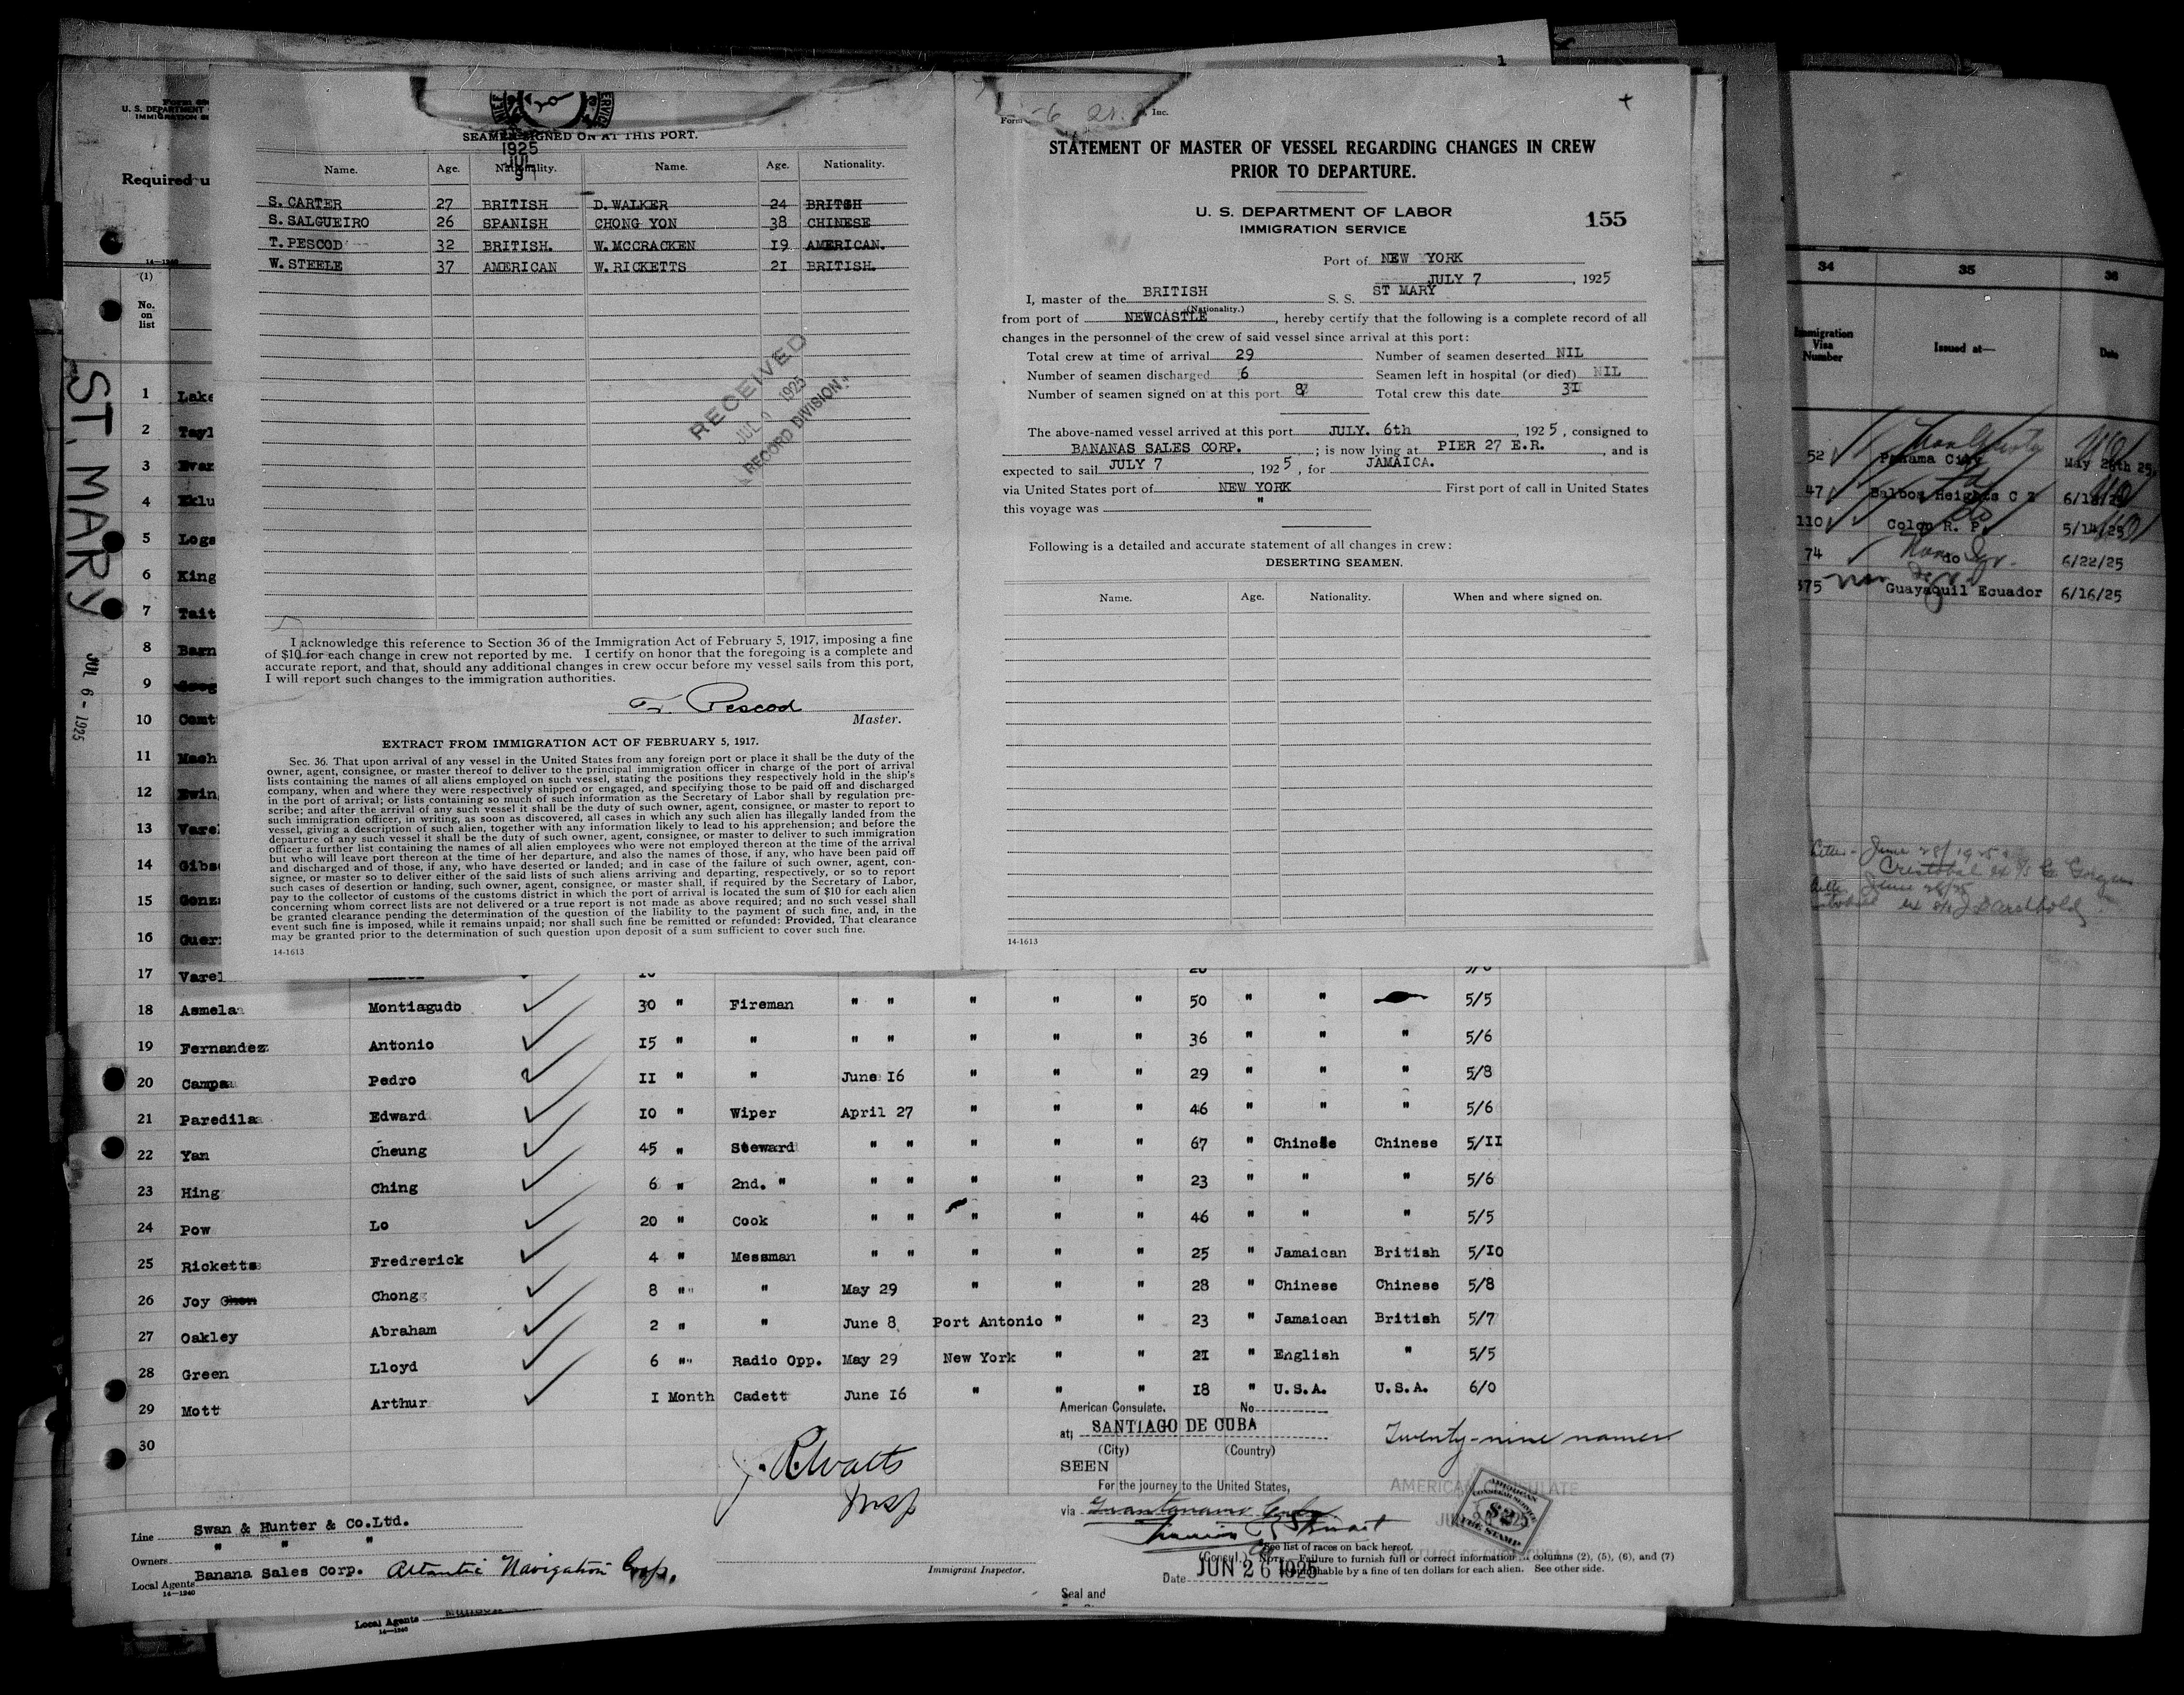 SEAMEN SIGNED ON AT THIS PORT.
1925
JUL
9
Name. Age. Nationality. Name. Age. Nationality.
S. CARTER 27 BRITISH D. WALKER 24 BRITSH
S. SALGUEIRO 26 SPANISH CHONG YON 38 CHINESE
T. PESCOD 32 BRITISH. W. MCCRACKEN 19 AMERICAN.
W. STEELE 37 AMERICAN W. RICKETTS 21 BRITISH.
RECEIVED
1925
RECORD DIVISION.
I acknowledge this reference to Section 36 of the Immigration Act of February 5, 1917, imposing a fine
of $10 for each change in crew not reported by me. I certify on honor that the foregoing is a complete and
accurate report, and that, should any additional changes in crew occur before my vessel sails from this port,
I will report such changes to the immigration authorities.
Pescod
Master.
EXTRACT FROM IMMIGRATION ACT OF FEBRUARY 5, 1917.
Sec. 36. That upon arrival of any vessel in the United States from any foreign port or place it shall be the duty of the
owner, agent, consignee, or master thereof to deliver to the principal immigration officer in charge of the port of arrival
lists containing the names of all aliens employed on such vessel, stating the positions they respectively hold in the ship's
company, when and where they were respectively shipped or engaged, and specifying those to be paid off and discharged
in the port of arrival; or lists containing so much of such information as the Secretary of Labor shall by regulation pre-
scribe; and after the arrival of any such vessel it shall be the duty of such owner, agent, consignee, or master to report to
such immigration officer, in writing, as soon as discovered, all cases in which any such alien has illegally landed from the
vessel, giving a description of such alien, together with any information likely to lead to his apprehension; and before the
departure of any such vessel it shall be the duty of such owner, agent, consignee, or master to deliver to such immigration
officer a further list containing the names of all alien employees who were not employed thereon at the time of the arrival
but who will leave port thereon at the time of her departure, and also the names of those, if any, who have been paid off
and discharged and of those, if any, who have deserted or landed; and in case of the failure of such owner, agent, con-
signee, or master so to deliver either of the said lists of such aliens arriving and departing, respectively, or so to report
such cases of desertion or landing, such owner, agent, consignee, or master shall, if required by the Secretary of Labor,
pay to the collector of customs of the customs district in which the port of arrival is located the sum of $10 for each alien
concerning whom correct lists are not delivered or a true report is not made as above required; and no such vessel shall
be granted clearance pending the determination of the question of the liability to the payment of such fine, and, in the
event such fine is imposed, while it remains unpaid; nor shall such fine be remitted or refunded: Provided, That clearance
may be granted prior to the determination of such question upon deposit of a sum sufficient to cover such fine.
14-1613
Form Inc.
STATEMENT OF MASTER OF VESSEL REGARDING CHANGES IN CREW
PRIOR TO DEPARTURE.
U. S. DEPARTMENT OF LABOR
IMMIGRATION SERVICE
155
Port of NEW YORK
JULY 7, 1925
I, master of the BRITISH S. S. ST MARY
(Nationality.)
from port of NEWCASTLE, hereby certify that the following is a complete record of all
changes in the personnel of the crew of said vessel since arrival at this port:
Total crew at time of arrival 29 Number of seamen deserted NIL
Number of seamen discharged 6 Seamen left in hospital (or died) NIL
Number of seamen signed on at this port 8 Total crew this date 31
The above-named vessel arrived at this port JULY. 6th, 1925, consigned to
BANANAS SALES CORP.; is now lying at PIER 27 E.R., and is
expected to sail JULY 7, 1925, for JAMAICA.
via United States port of NEW YORK First port of call in United States
this voyage was "
Following is a detailed and accurate statement of all changes in crew:
DESERTING SEAMEN.
Name. Age. Nationality. When and where signed on.
14-1613
U. S. DEPARTMENT
Required u
14-1240
(1)
No. on list
ST. MARY
JUL 6 - 1925
1 Lake
2 Tayl
3 Evar
4 Eklu
5 Loga
6 King
7 Tait
8 Barn
9
10
11 Mach
12 Ewin
13 Varel
14 Gibs
15 Gonz
16 Guer
17 Varel
18 Asmela Montiagudo 30 " Fireman " " " " " 50 " " 5/5
19 Fernandez Antonio 15 " " " " " " " 36 " " " 5/6
20 Campa Pedro 11 " " June 16 " " " 29 " " " 5/8
21 Paredila Edward 10 " Wiper April 27 " " " 46 " " " 5/6
22 Yan Cheung 45 " Steward " " " " " 67 " Chinese Chinese 5/11
23 Hing Ching 6 " 2nd. " " " " " " 23 " " " 5/6
24 Pow Lo 20 " Cook " " " " " 46 " " " 5/5
25 Ricketts Fredrerick 4 " Messman " " " " " 25 " Jamaican British 5/10
26 Joy Chong 8 " " May 29 " " " 28 " Chinese Chinese 5/8
27 Oakley Abraham 2 " " June 8 Port Antonio " " 23 " Jamaican British 5/7
28 Green Lloyd 6 " Radio Opp. May 29 New York " " 21 " English " 5/5
29 Mott Arthur 1 Month Cadett June 16 " " " 18 " U.S.A. U.S.A. 6/0
30
American Consulate. No
at; SANTIAGO DE CUBA
(City) (Country)
SEEN
For the journey to the United States,
via Guantanamo Cuba
(Consul.)
Date JUN 26 1925
Seal and
Twenty-nine names
AMERICAN CONSULATE
AMERICAN CONSULAR SERVICE $2 FEE STAMP
Insp
Line Swan & Hunter & Co.Ltd.
Owners " " "
Local Agents Banana Sales Corp. Atlantic Navigation Corp.
14-1240
Immigrant Inspector.
See list of races on back hereof.
NOTE.—Failure to furnish full or correct information in columns (2), (5), (6), and (7)
punishable by a fine of ten dollars for each alien. See other side.
Local Agents
14-1240
34 35 36
Immigration Visa Number Issued at— Date
52 Panama City May 28th 25,
47 Balboa Heights C Z 6/18/25
110 Colon R. P. 5/14/25
74 do 6/22/25
375 Guayaquil Ecuador 6/16/25
June 28/1925
Cristobal